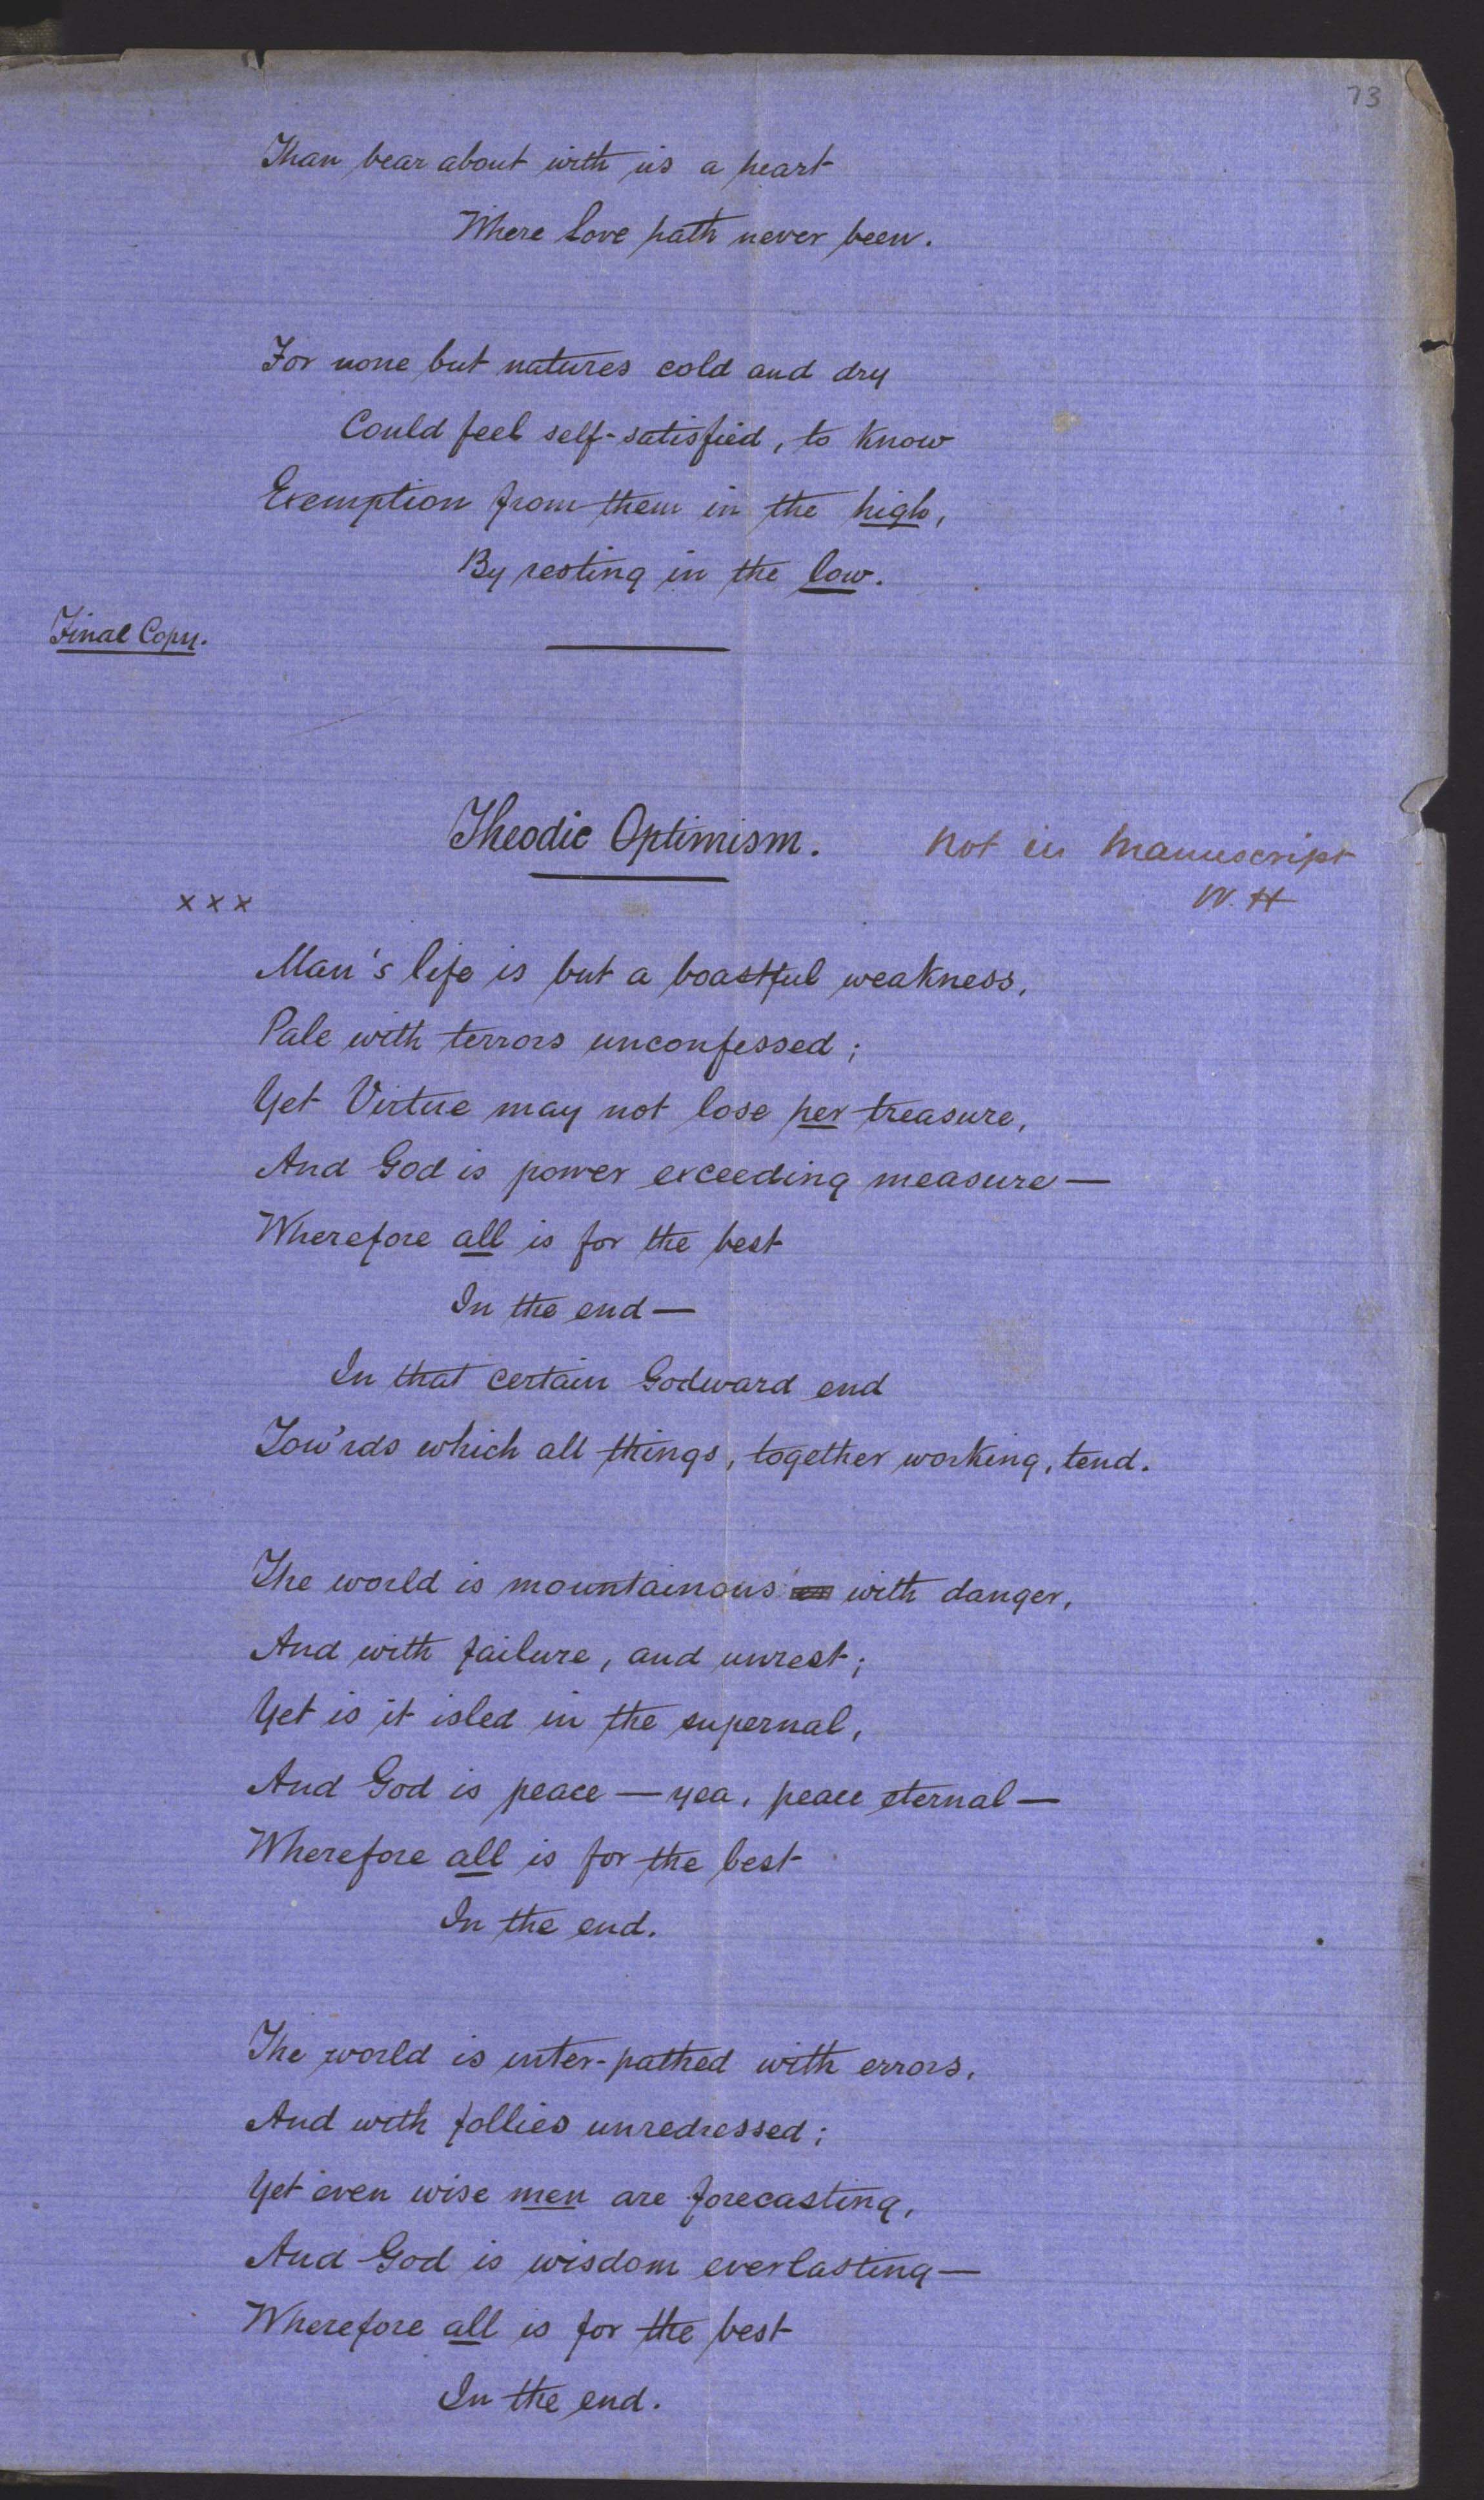 73
Than bear about with us a heart
Where Love hath never been.
For none but natures cold and dry
Could feel self-satisfied, to know
Exemption from them in the high,
By resting in the low.
Final Copy.
Theodic Optimism.
Not in Manuscript
W. H
x x x
Man's life is but a boastful weakness,
Pale with terrors unconfessed;
Yet Virtue may not lose her treasure,
And God is power exceeding measure—
Wherefore all is for the best
In the end—
In that certain Godward end
Tow'rds which all things, together working, tend.
The world is mountainous with danger,
And with failure, and unrest;
Yet is it isled in the supernal,
And God is peace—yea, peace eternal—
Wherefore all is for the best
In the end.
The world is inter-pathed with errors,
And with follies unredressed;
Yet even wise men are forecasting,
And God is wisdom everlasting—
Wherefore all is for the best
In the end.